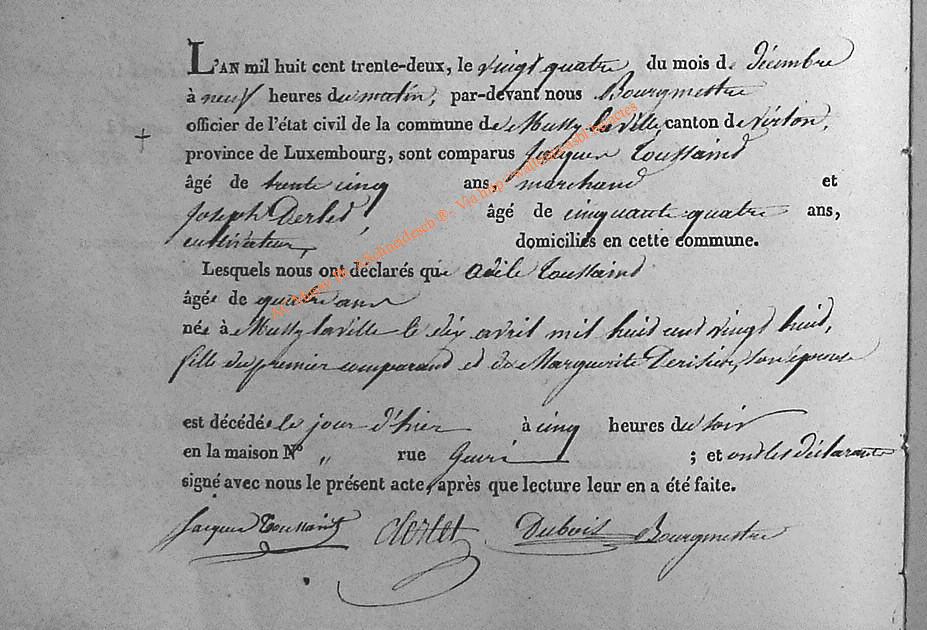 L'AN mil huit cent trente-deux, le vingt quatre du mois de décembre
à neuf heures du matin, par-devant nous Bourgmestre
officier de l'état civil de la commune de Mussy laville, canton de Virton,
province de Luxembourg, sont comparus Jacques Toussaint
âgé de trente cinq ans, marchand et
Joseph Derlet, âgé de cinquante quatre ans,
cultivateur, domiciliés en cette commune.
Lesquels nous ont déclarés que Adèle Toussaint
âgée de quatre ans
née à Mussy laville le dix avril mil huit cent vingt huit,
fille du premier comparant et de Marguerite son épouse
est décédée le jour d'hier à cinq heures du soir
en la maison N° „ rue ; et ont les déclarants
signé avec nous le présent acte, après que lecture leur en a été faite.
Jacques Toussaint Derlet Dubois Bourgmestre